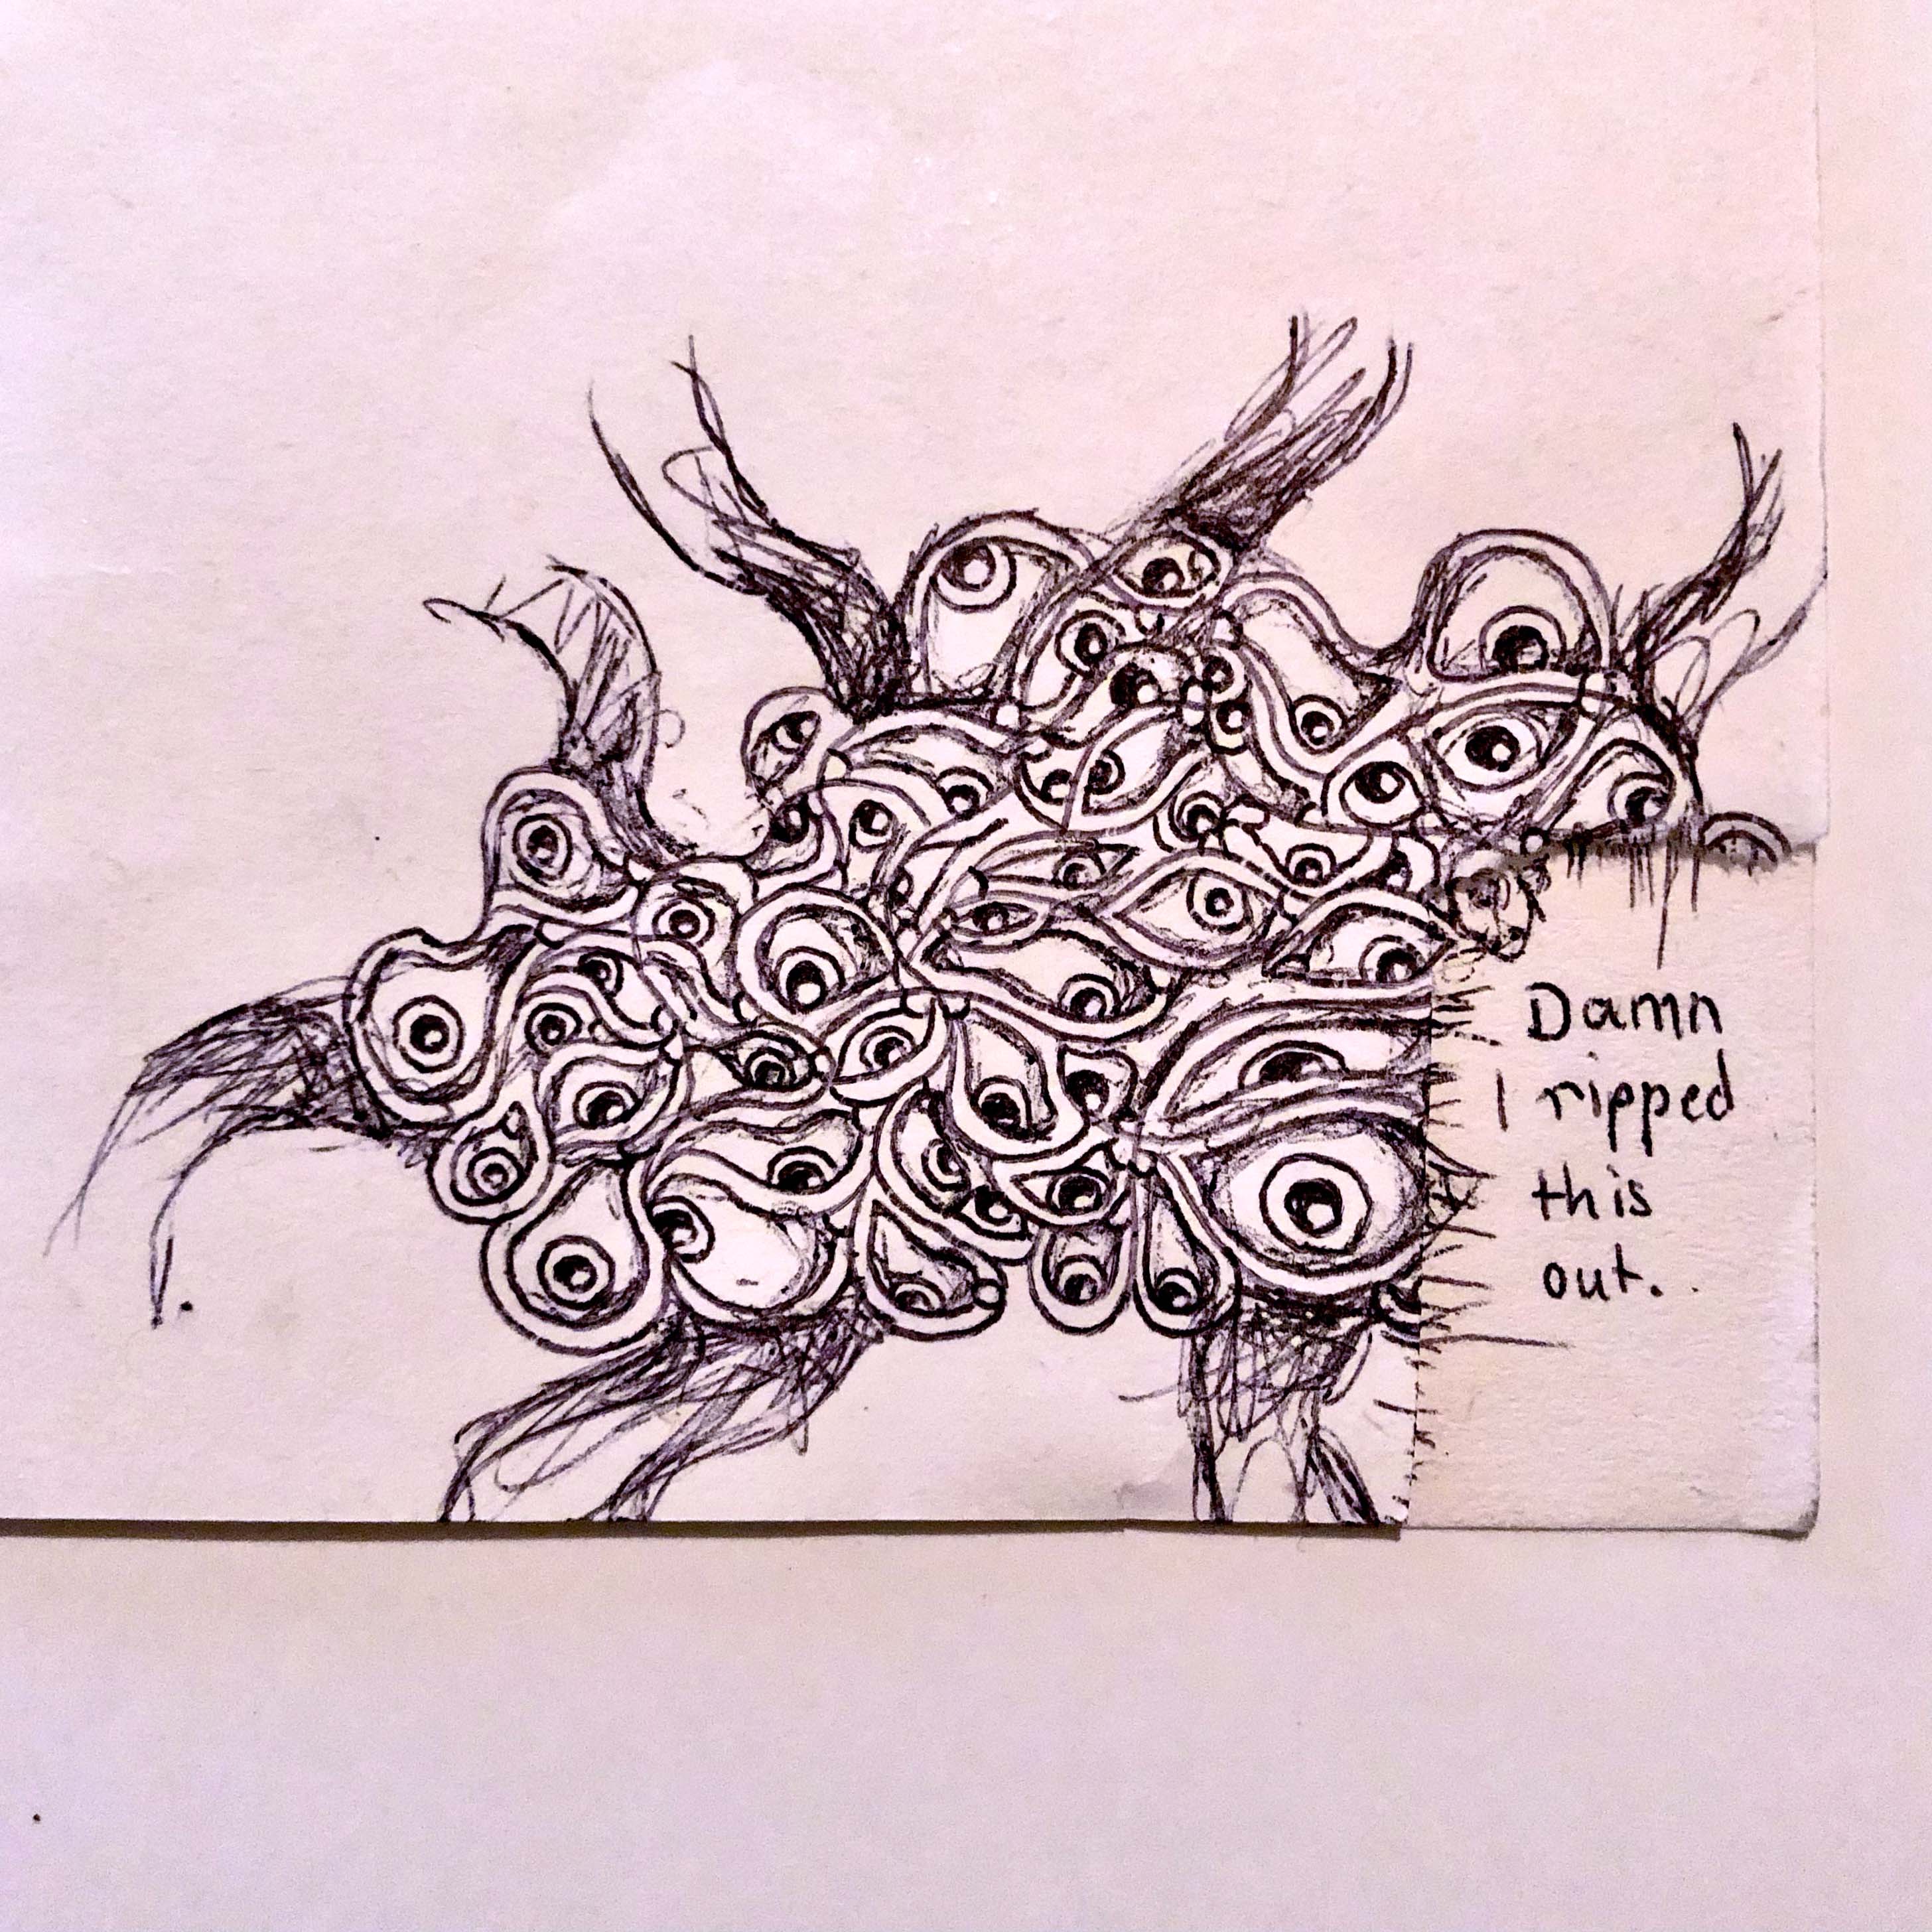 Damn
I ripped
this
out..